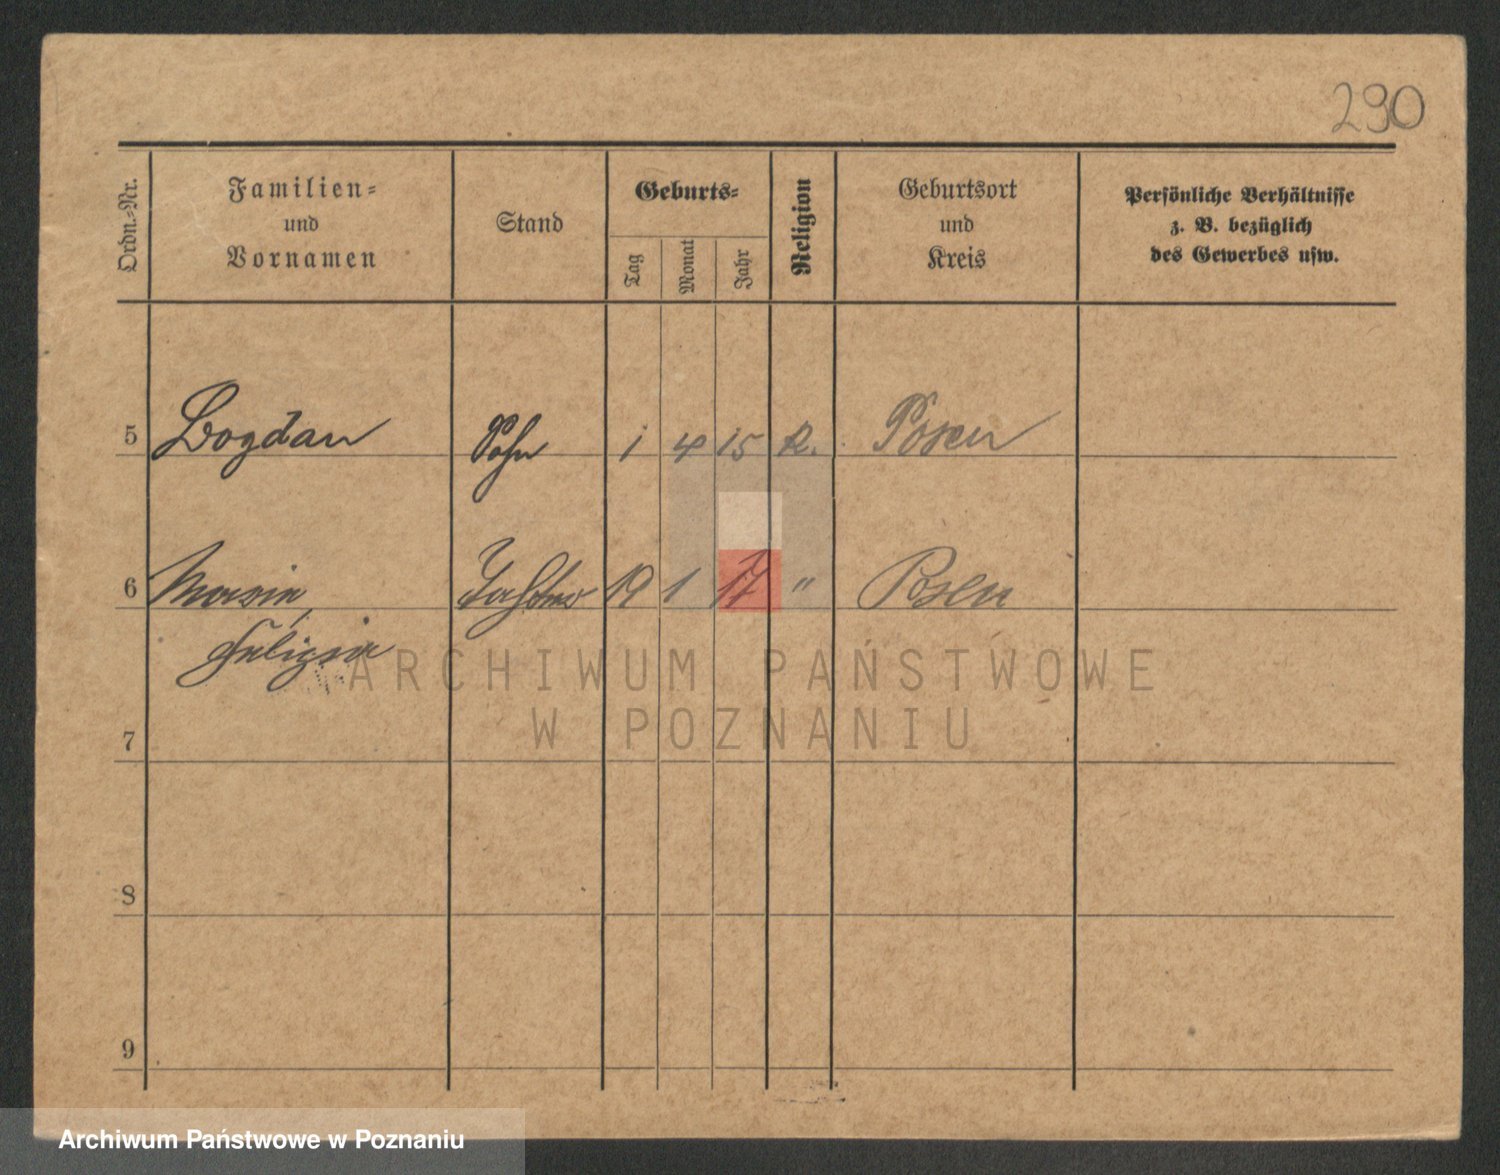 290
Ordn.-Nr.
Familien-
und
Vornamen
Stand
Geburts-
Tag
Monat
Jahr
Religion
Geburtsort
und
Kreis
Persönliche Verhältnisse
z. B. bezüglich
des Gewerbes usw.
5 Bogdan Sohn 1 4 15 K. Posen
6 Maria, Tochter 19 1 17 " Posen
Felizia
ARCHIWUM PAŃSTWOWE
W POZNANIU
7
8
9
Archiwum Państwowe w Poznaniu